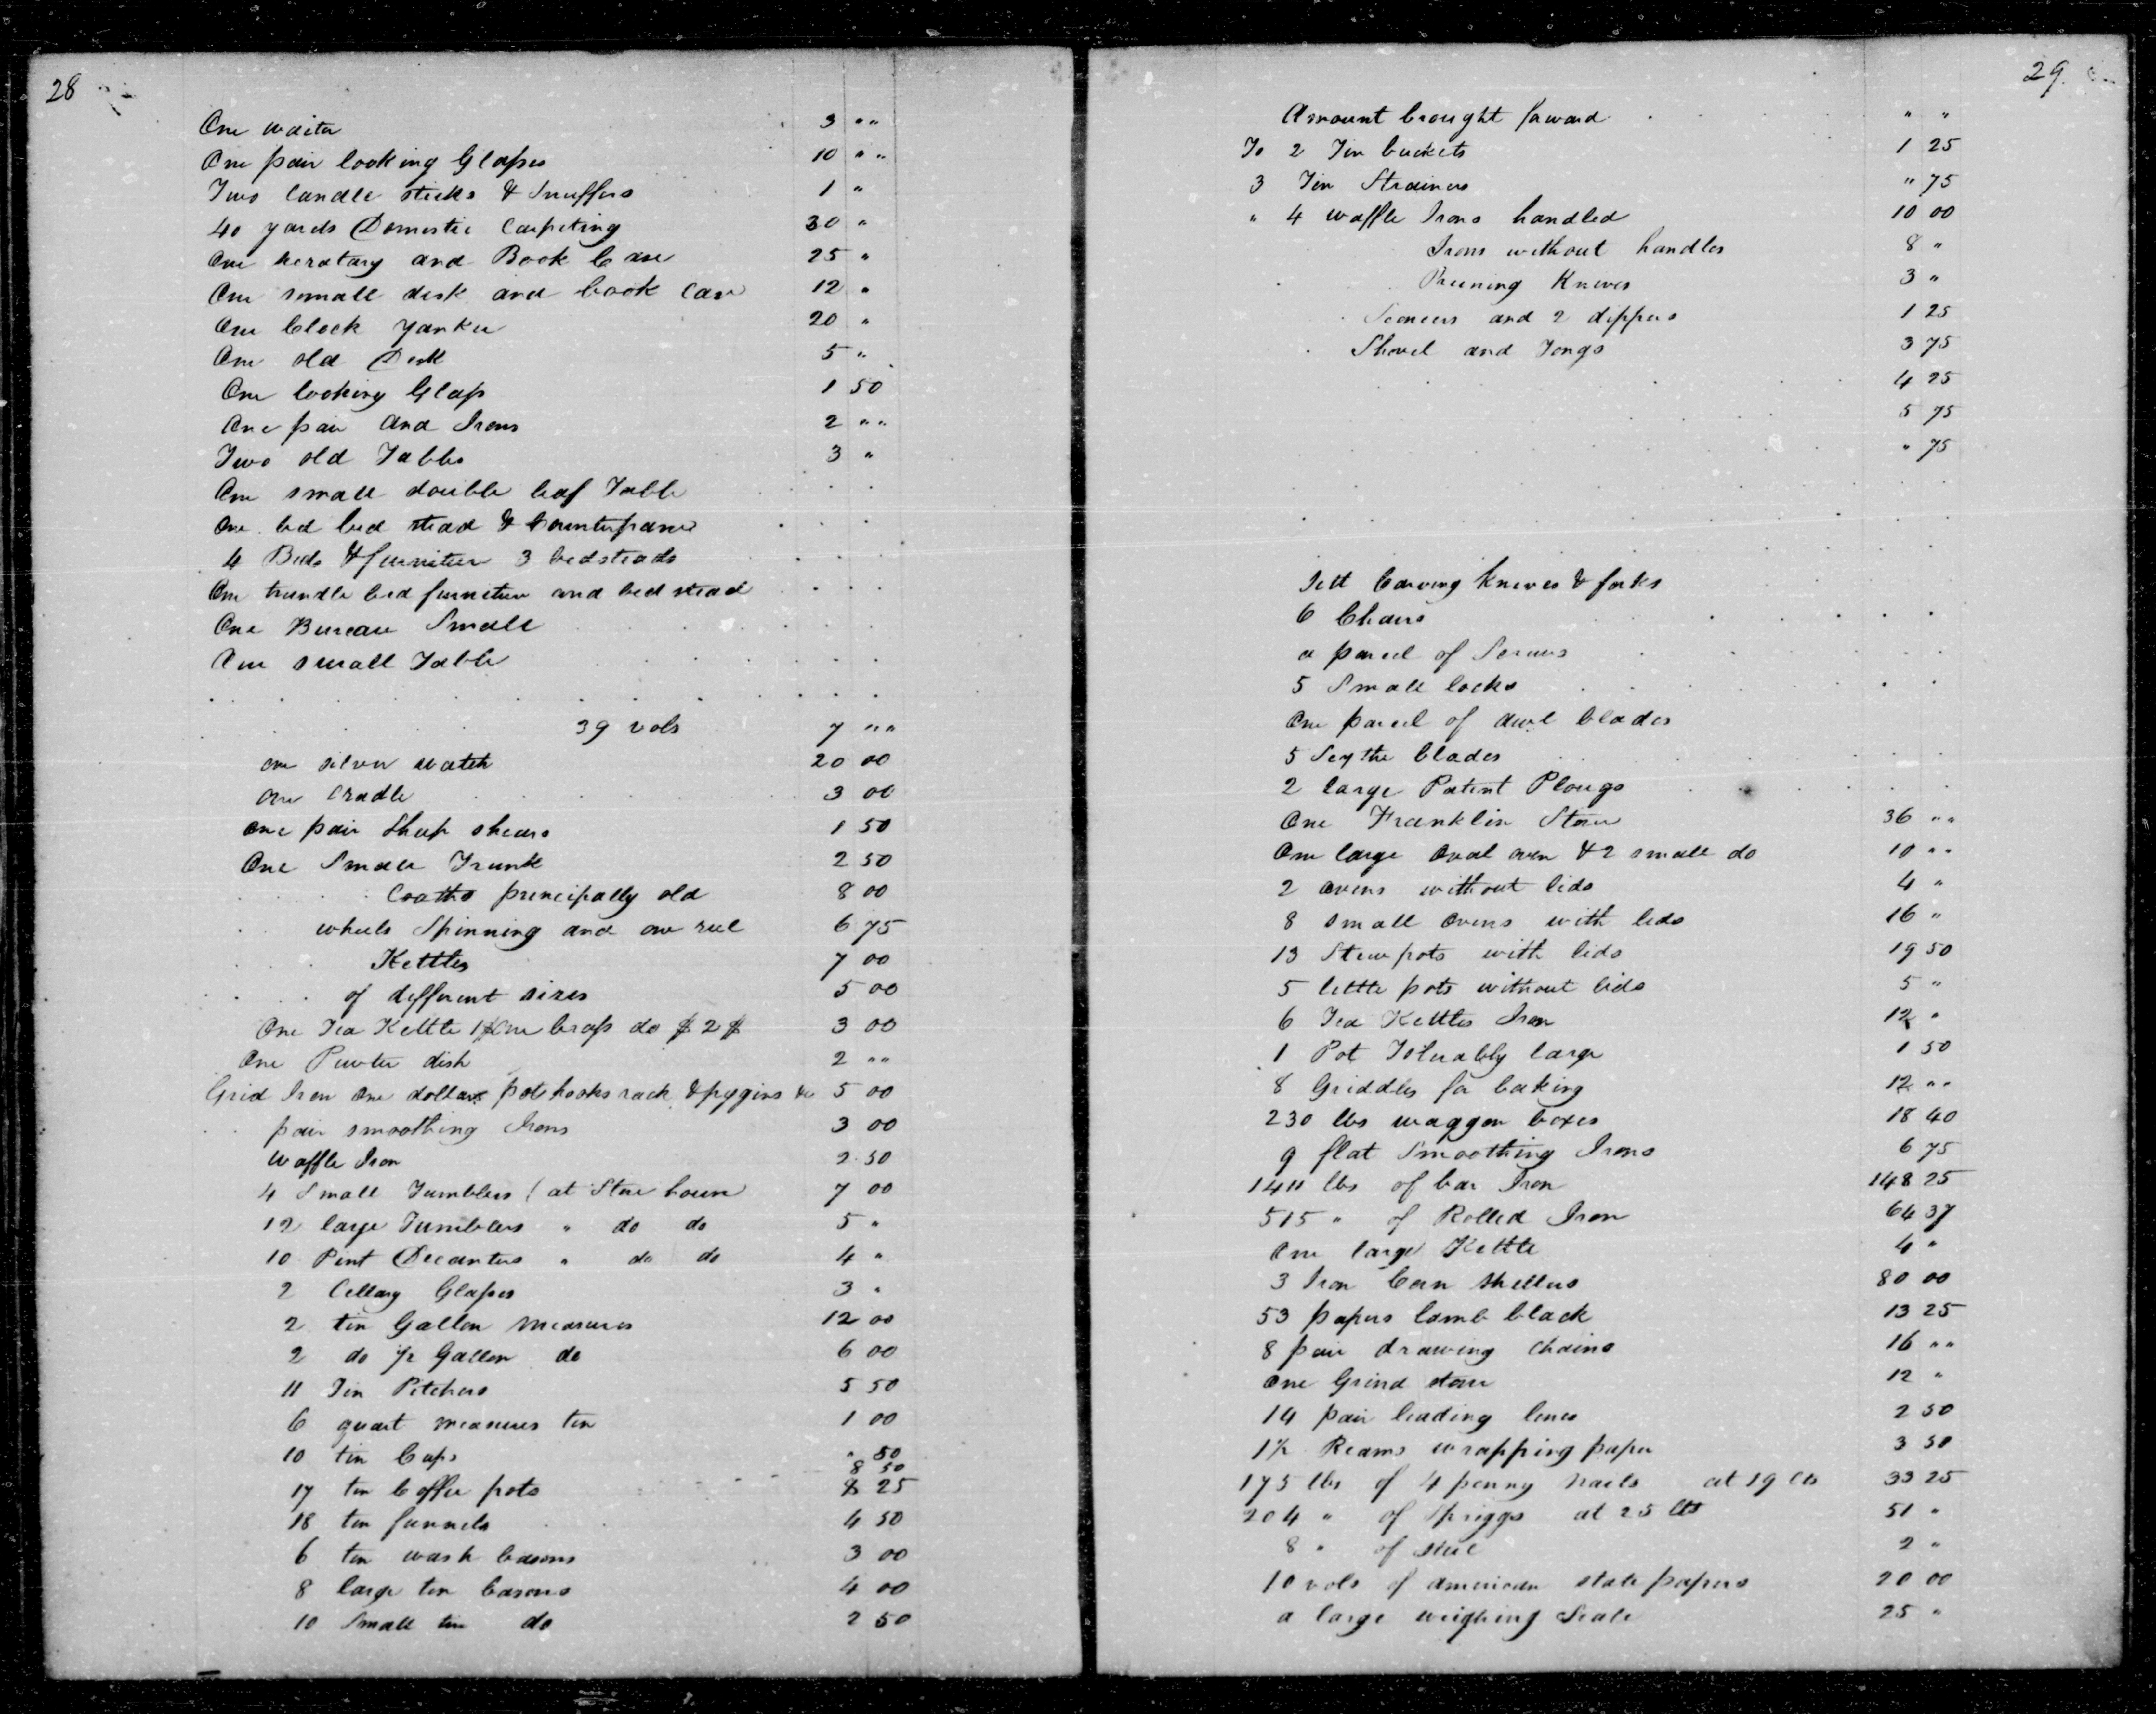 28
One waiter 3 " "
One pair looking Glasses 10 " "
Two Candle sticks & Snuffers 1 "
40 yards Domestic Carpeting 30 "
One secratary and Book Case 25 "
One small desk and book Case 12 "
One Clock yankee 20 "
One old Desk 5 "
One looking Glass 1 50
One pair And Irons 2 " "
Two old Tables 3 "
One small double leaf Table
One bed bed stead & Counterpane
4 Beds & furniture 3 bedsteads
One trundle bed furniture and bed stead
One Bureau Small
One small Table
39 vols 7 " "
one silver watch 20 00
one Cradle 3 00
one pair Sheep shears 1 50
One Small Trunk 2 50
Cloaths principally old 8 00
wheels Spinning and one reel 6 75
Kettles 7 00
of different sizes 5 00
One Tea Kettle 1$ One brass do $ 2 $ 3 00
One Pewter dish 2 " "
Grid Iron One dollar pot hooks rack & piggins &c 5 00
pair smoothing Irons 3 00
Waffle Iron 2 50
4 Small Tumblers (at Store house 7 00
12 large Tumblers " do do 5 "
10 Pint Decanters " do do 4 "
2 Cellary Glasses 3 "
2 tin Gallon measures 12 00
2 do ½ Gallon do 6 00
11 Tin Pitchers 5 50
6 quart measures tin 1 00
10 tin Cups " 50
8 50
17 tin Coffee pots 8 25
18 tin funnels 4 50
6 tin wash basons 3 00
8 large tin basons 4 00
10 Small tin do 2 50
29
Amount brought forward " "
To 2 Tin buckets 1 25
3 Tin Strainers " 75
" 4 waffle Irons handled 10 00
Irons without handles 8 "
Pruning Knives 3 "
and 2 dippers 1 25
Shovel and Tongs 3 75
4 25
5 75
" 75
Sett Carving Knives & forks
6 Chairs
a parcel of Screws
5 Small locks
One parcel of awl blades
5 Scythe blades
2 large Patent Plougs
One Franklin Stove 36 " "
One large Oval oven & 2 small do 10 " "
2 ovens without lids 4 "
8 small Ovens with leds 16 "
13 Stew pots with lids 19 50
5 little pots without lids 5 "
6 Tea Kettles Iron 12 "
1 Pot Toluably large 1 50
8 Griddles for baking 12 " "
230 lbs waggon boxes 18 40
9 flat Smoothing Irons 6 75
1411 lbs of bar Iron 148 25
515 " of Rolled Iron 64 37
One large Kettle 4 "
3 Iron Corn Shellers 80 00
53 papers lamb black 13 25
8 pair drawing Chains 16 " "
One Grind stone 12 "
14 pair leading lines 2 50
1½ Reams wrapping paper 3 50
175 lbs of 4 penny nails at 19 cts 33 25
204 " of Spriggs at 25 cts 51 "
8 " of steel 2 "
10 vols of American state papers 20 00
a large weighing Scale 25 "